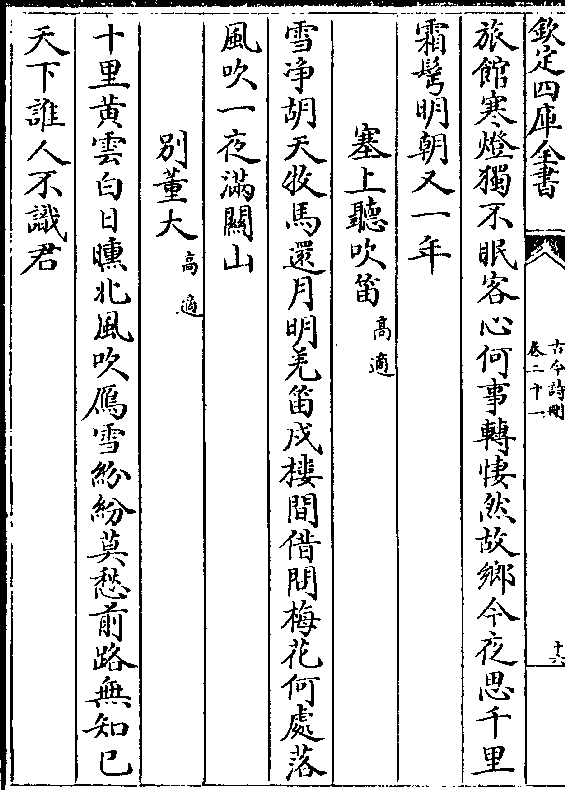 欽定四庫全書
古今詩刪
卷二十一
十六
旅館寒燈獨不眠客心何事轉悽然故鄉今夜思千里
霜髩明朝又一年
塞上聽吹笛高適
雪净胡天牧馬還月明羌笛戍樓間借問梅花何處落
風吹一夜滿關山
別董大高適
十里黃雲白日曛北風吹鴈雪紛紛莫愁前路無知已
天下誰人不識君